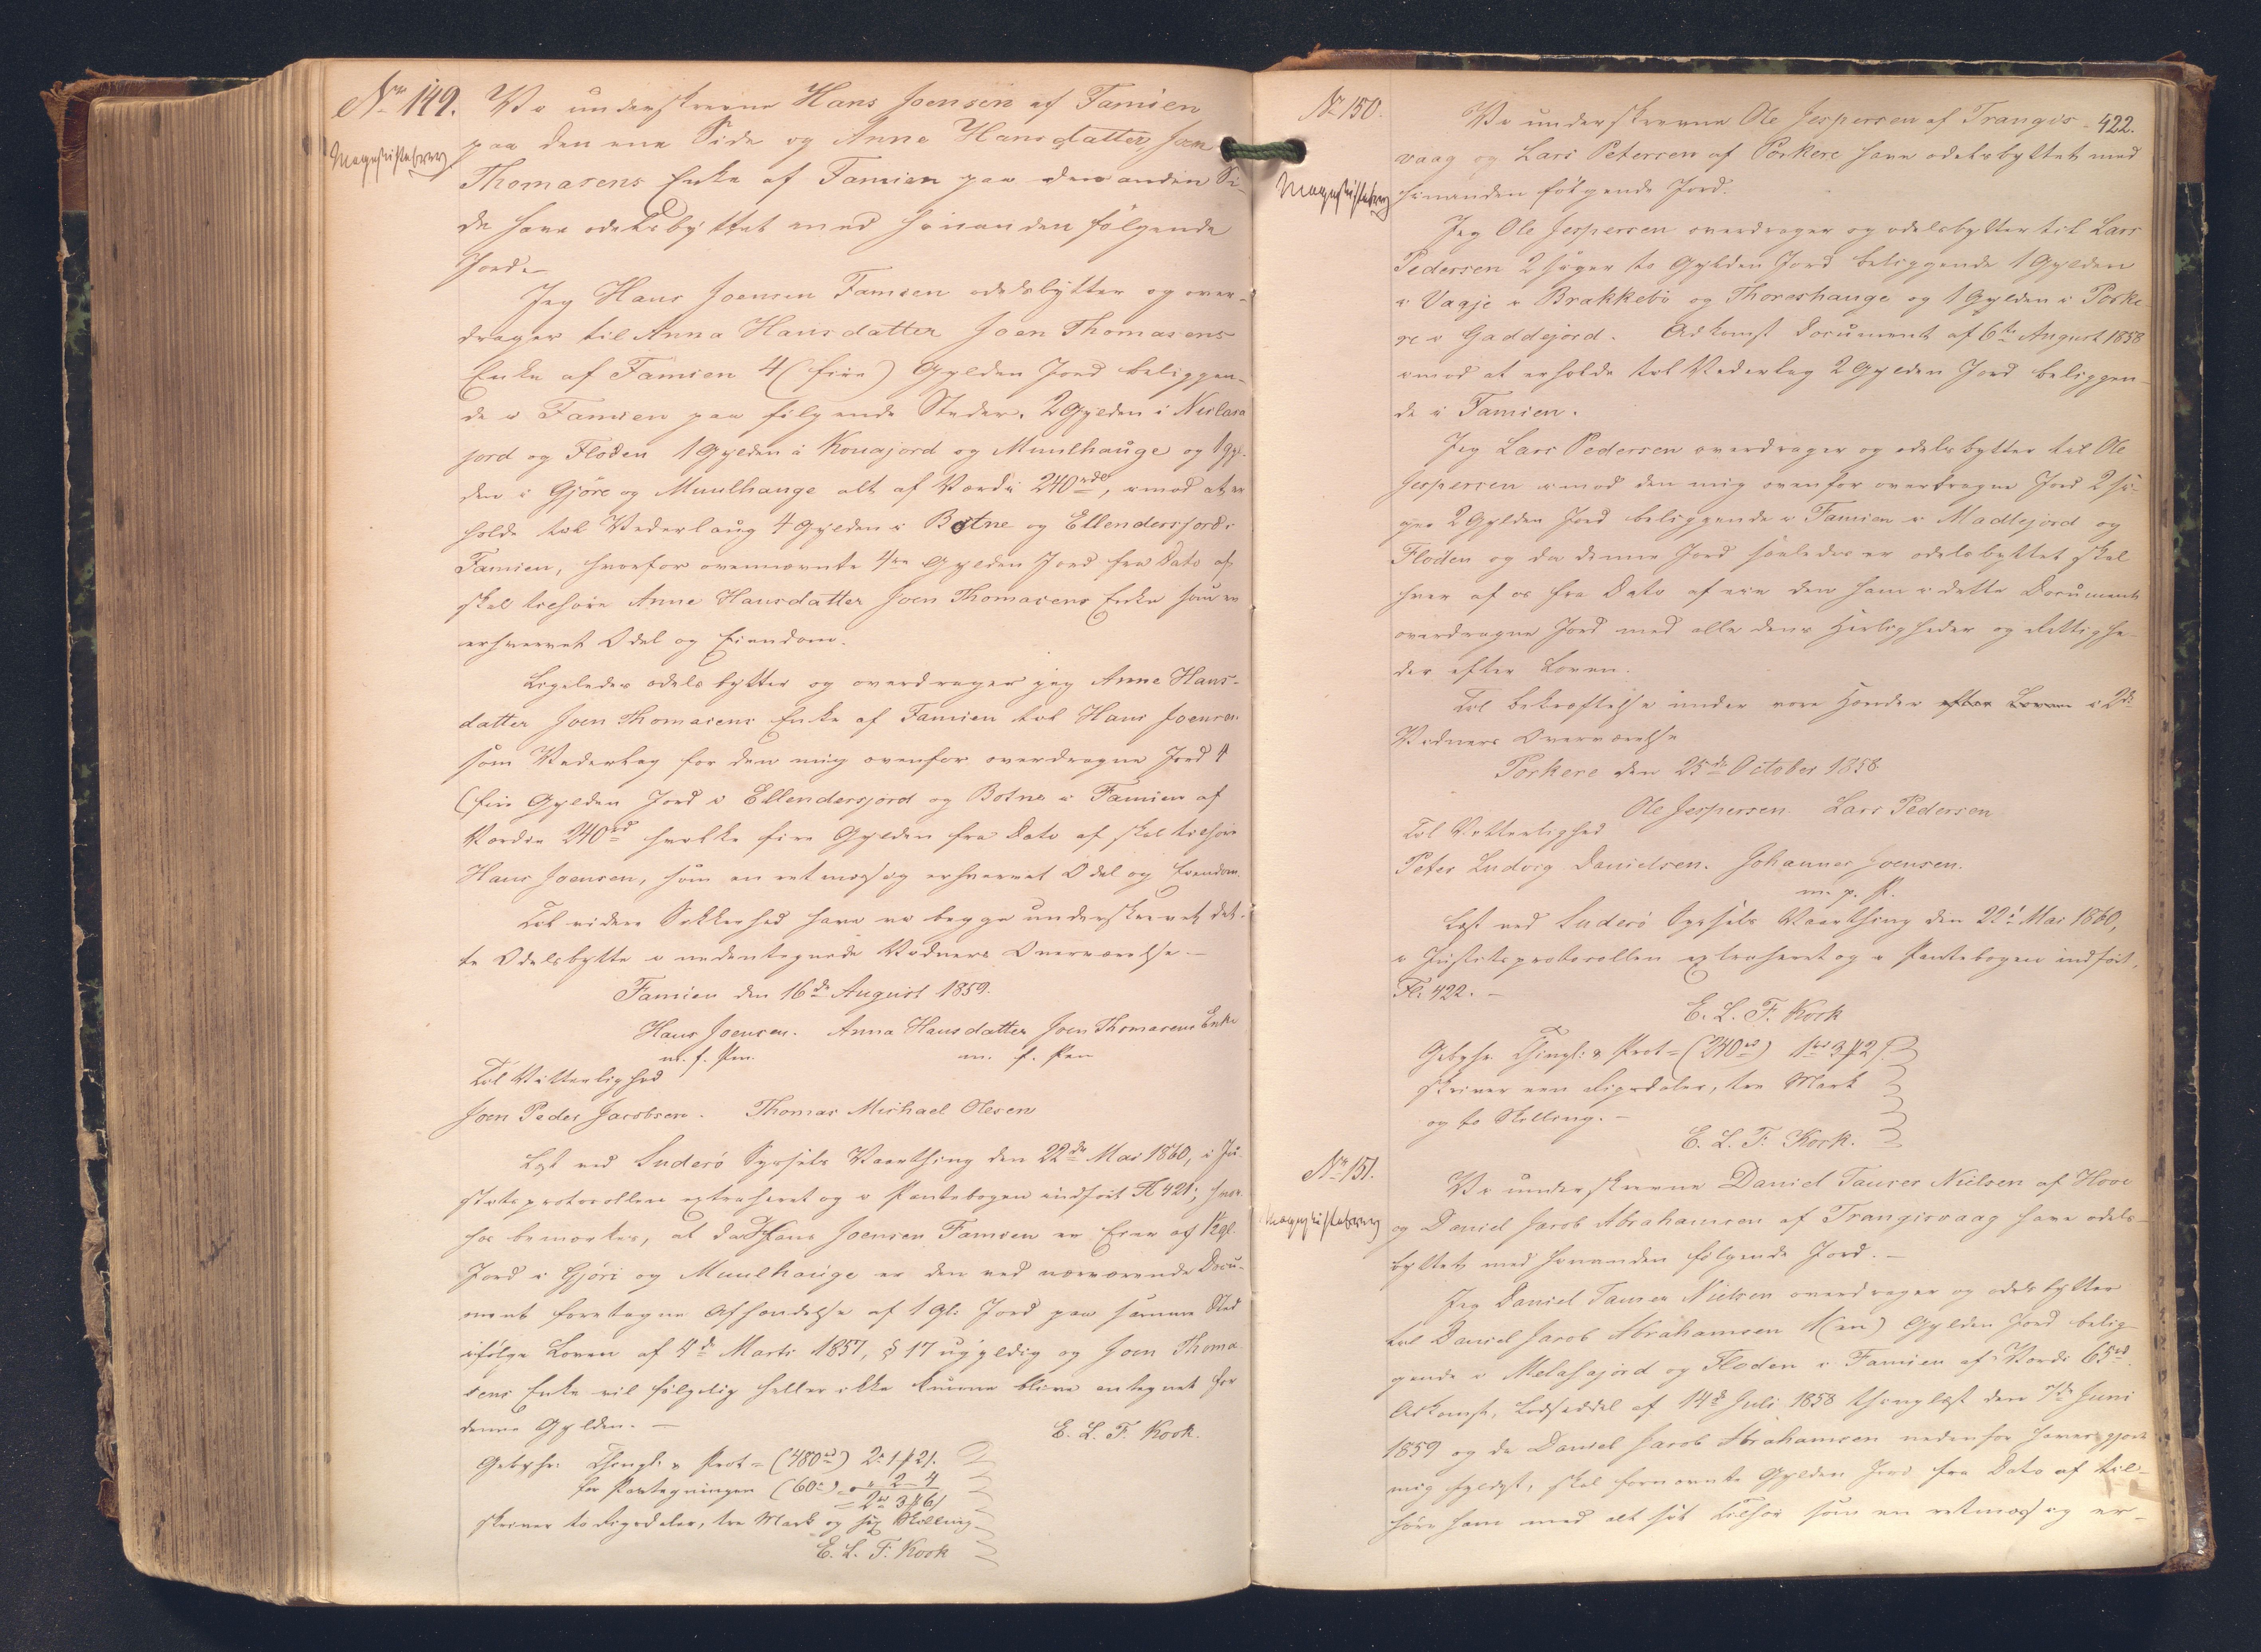 No 149.
Mageskiftebrev
Vi underskrevne Hans Joensen af Famien
paa den ene Side og Anne Hansdatter Joen
Thomasens Enke af Famien paa den anden Si-
de have odelsbyttet med hinanden følgende
Jord.
Jeg Hans Joensen Famien odelsbytter og over-
drager til Anna Hansdatter Joen Thomasens
Enke af Famien 4 (fire) Gylden Jord beliggen-
de i Famien paa følgende Steder. 2 Gylden i Niclasa
jord og Floden 1 Gylden i Konajord og Muulhauge og 1 Gyl-
den i Gjøre og Muulhauge alt af Værdi 240 rdl, imod at er
holde til Vederlaug 4 Gylden i Botne og Ellendersjord i
Famien, hvorfor ovennævnte 4re Gylden Jord fra Dato af
skal tilhøre Anne Hansdatter Joen Thomasens Enke som en
erhvervet Odel og Eiendom.
Ligeledes odelsbytter og overdrager jeg Anne Hans-
datter Joen Thomasens Enke af Famien til Hans Joensen
som Vederlag for den mig ovenfor overdragne Jord 4
(fire Gylden Jord i Ellendersjord og Botne i Famien af
Værdie 240 rd hvilke fire Gylden fra Dato af skal tilhøre
Hans Joensen, som en retmæssig erhvervet Odel og Eiendom.
Til videre Sikkerhed have vi begge underskrevet det-
te Odelsbytte i undentegnede Vidners Overværelse.—
Famien den 16de August 1859.
Hans Joensen. Anna Hansdatter Joen Thomasens Enke
m. f. Pen. m. f. Pen
Til Vitterlighed
Joen Peder Jacobsen. Thomas Michael Olesen
Læst ved Suderø Syssels Vaarthing den 22de Mai 1860, i Ju-
stitsprotocollen extraheret og i Pantebogen indført Fl 421; hvor-
hos bemærkes, at da Hans Joensen Famien er Eier af 1 Gl.
Jord i Gjøri og Muulhauge er den ved nærværende Docu-
ment foretagne Afhændelse af 1 Gl. Jord paa samme Sted
ifølge Loven af 4de Marts 1857, § 17 ugyldig og Joen Thoma
sens Enke vil følgelig heller ikke kunne blive antegnet for
denne Gylden.—
E. L. F. Kock.
Gebyhr: Thingl: & Prot = (480 rd) 2 " 1 ß 2/.
for Paategningen (60 ") = " " 2 - 4
= 2 rd 3 ß 6/
skriver to Rigsdaler, tre Mark og sex Skilling
E. L. F. Kock
422.
No 150.
Mageskiftebrev
Vi underskrevne Ole Jespersen af Trangis-
vaag og Lars Petersen af Porkere have odelsbyttet med
hinanden følgende Jord.
Jeg Ole Jespersen overdrager og odelsbytter til Lars
Pedersen 2 siger to Gylden Jord beliggende 1 Gylden
i Vaaje i Brakkebø og Thoreshauge og 1 Gylden i Porke
re i Gaddejord. Adkomst Document af 6te August 1858
imod at erholde til Vederlag 2 Gylden Jord beliggen-
de i Famien.
Jeg Lars Pedersen overdrager og odelsbytter til Ole
Jespersen imod den mig ovenfor overdragne Jord 2 si-
ger 2 Gylden Jord beliggende i Famien i Madlejord og
Floden og da denne Jord saaledes er odelsbyttet skal
hver af os fra Dato af eie den ham i dette Document
overdragne Jord med alle dens Herligheder og Rettighe-
der efter Loven.
Til bekræftelse under vore Hænder efter Loven i 2de
Vidners Overværelse
Porkere den 25de October 1858.
Ole Jespersen. Lars Pedersen
Til Vitterlighed
Peter Ludvig Danielsen. Johannes Joensen.
m. p. P.
Læst ved Suderø Syssels Vaarthing den 22de Mai 1860,
i Justitsprotocollen extraheret og i Pantebogen indført,
Fl. 422.—
E. L. F. Kock
Gebyhr. Thingl: & Prot = (240 rd) 1 rd 3 ß 2/.
skriver een Rigsdaler, tre Mark
og to Skilling.—
E. L. F. Kock.
No 151.
Mageskiftebrev
Vi underskrevne Daniel Taures Nielsen af Hove
og Daniel Jacob Abrahamsen af Trangisvaag have odels-
byttet med hinanden følgende Jord.—
Jeg Daniel Taures Nielsen overdrager og odelsbytter
til Daniel Jacob Abrahamsen 1 (en) Gylden Jord belig-
gende i Melhajord og Floden i Famien af Værdi 65 rd.
Adkomst, Lodseddel af 14de Juli 1858 thinglæst den 7de Juni
1859 og da Daniel Jacob Abrahamsen nedenfor haver gjort
mig fyldest, skal fornævnte Gylden Jord fra Dato af til-
høre ham med alt sit Tilhør som en retmæssig er-